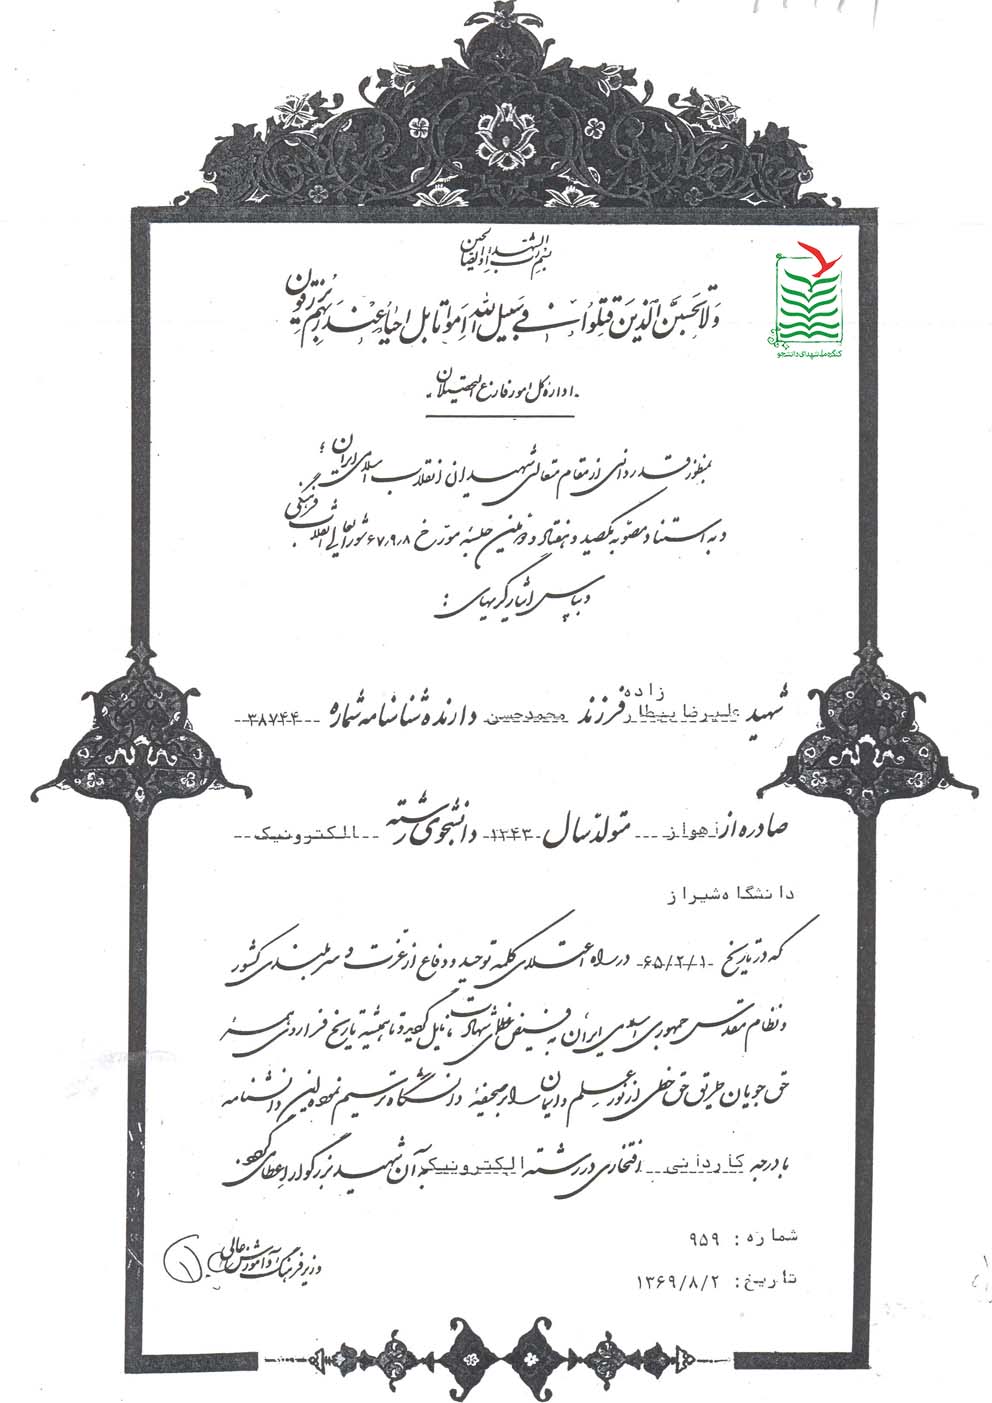 بسم رب الشهداء و الصالحین
ولا تحسبن الذین قتلوا فی سبیل الله امواتا بل احیاء عند ربهم یرزقون
کنگره ملی شهدای دانشجو
اداره کل امور فارغ التحصیلان
بمنظور قدردانی از مقام متعالی شهیدان انقلاب اسلامی ایران ؛
و به استناد مصوبه یکصد و هفتاد و دومین جلسه مورخ ۶۷٫۹٫۸ شورایعالی انقلاب فرهنگی
و بپاس ایثارگریهای :
شهید علیرضا پنطار زاده فرزند محمدحسن دارنده شناسنامه شماره ۳۸۷۴۴
صادره از اهواز متولد سال ۱۳۴۳ دانشجوی رشته الکترونیک
دانشگاه شیراز
که در تاریخ ۶۵/۲/۱ در راه اعتلای کلمه توحید و دفاع از عزت و سربلندی کشور
و نظام مقدس جمهوری اسلامی ایران به فیض عظمای شهادت نایل گردید و تا همیشه تاریخ فرا روی همه
حق جویان طریق حق خطی از نور علم و ایمان را بر صحیفه دانشگاه ترسیم نموده این دانشنامه
با درجه کاردانی افتخاری در رشته الکترونیک به آن شهید بزرگوار اعطا می گردد.
شماره : ۹۵۹
تاریخ: ۱۳۶۹/۸/۲
وزیر فرهنگ و آموزش عالی